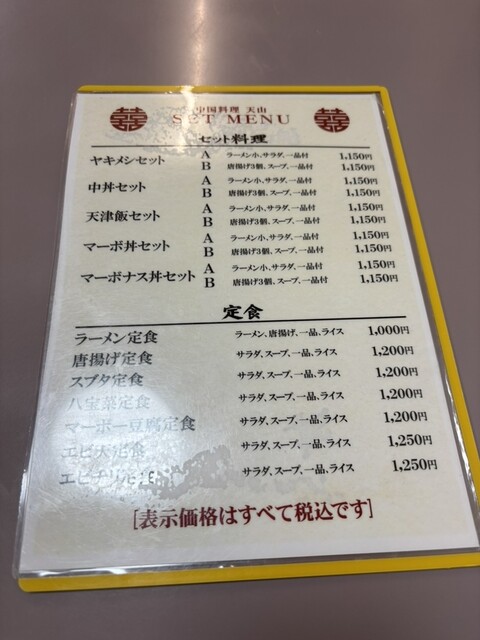 中国料理 天山
SET MENU
セット料理
ヤキメシセット A ラーメン小、サラダ、一品付 1,150円
B 唐揚げ3個、スープ、一品付 1,150円
中丼セット A ラーメン小、サラダ、一品付 1,150円
B 唐揚げ3個、スープ、一品付 1,150円
天津飯セット A ラーメン小、サラダ、一品付 1,150円
B 唐揚げ3個、スープ、一品付 1,150円
マーボ丼セット A ラーメン小、サラダ、一品付 1,150円
B 唐揚げ3個、スープ、一品付 1,150円
マーボナス丼セット A ラーメン小、サラダ、一品付 1,150円
B 唐揚げ3個、スープ、一品付 1,150円
定食
ラーメン定食 ラーメン、唐揚げ、一品、ライス 1,000円
唐揚げ定食 サラダ、スープ、一品、ライス 1,200円
スブタ定食 サラダ、スープ、一品、ライス 1,200円
八宝菜定食 サラダ、スープ、一品、ライス 1,200円
マーボー豆腐定食 サラダ、スープ、一品、ライス 1,200円
エビ天定食 サラダ、スープ、一品、ライス 1,250円
エビチリ定食 サラダ、スープ、一品、ライス 1,250円
[表示価格はすべて税込です]